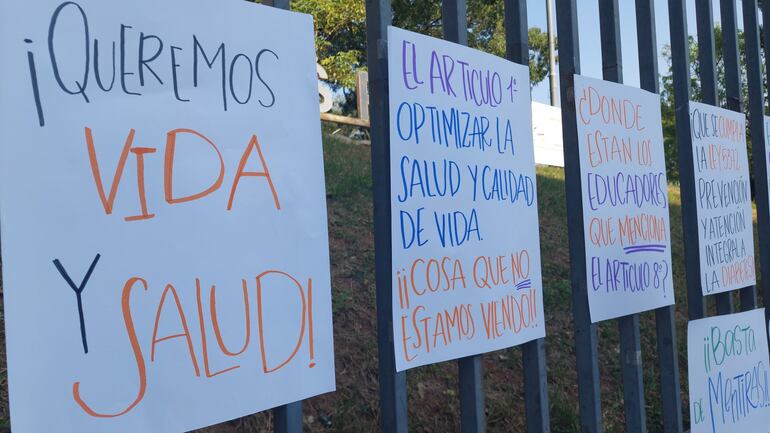 ¡QUEREMOS
VIDA
Y SALUD!
EL ARTICULO 1º
OPTIMIZAR LA
SALUD Y CALIDAD
DE VIDA.
¡¡COSA QUE NO
ESTAMOS VIENDO!!
¿DONDE
ESTAN LOS
EDUCADORES
QUE MENCIONA
EL ARTICULO 8º?
¡QUE SE CUMPLA
LA LEY 5372
PREVENCIÓN
Y ATENCIÓN
INTEGRAL A
LA DIABETES!
¡¡BASTA
DE MENTIRAS!!